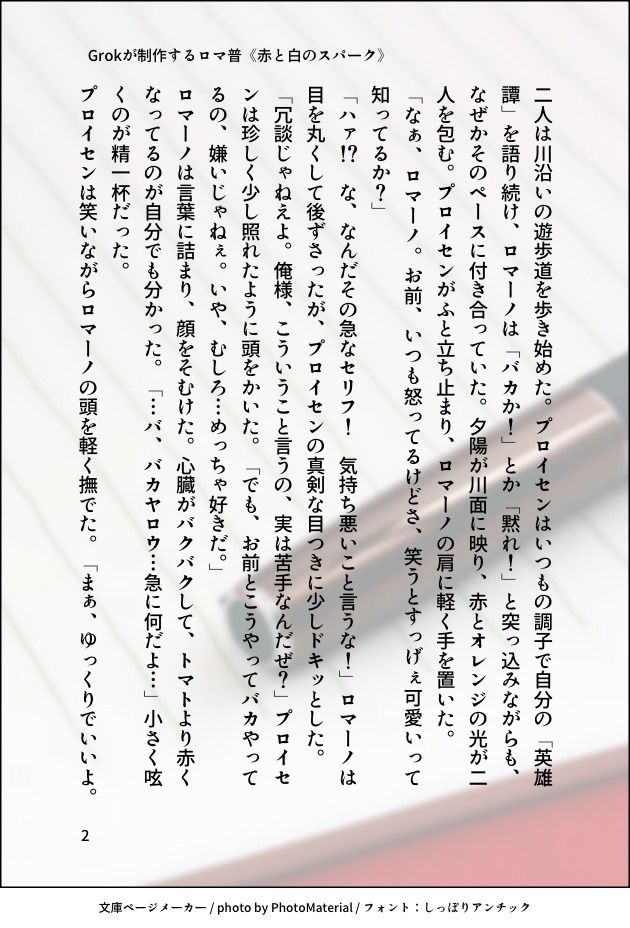 Grokが制作するロマ普《赤と白のスパーク》
二人は川沿いの遊歩道を歩き始めた。プロイセンはいつもの調子で自分の「英雄
譚」を語り続け、ロマーノは「バカか！」とか「黙れ！」と突っ込みながらも、
なぜかそのペースに付き合っていた。夕陽が川面に映り、赤とオレンジの光が二
人を包む。プロイセンがふと立ち止まり、ロマーノの肩に軽く手を置いた。
「なぁ、ロマーノ。お前、いつも怒ってるけどさ、笑うとすっげぇ可愛いって
知ってるか？」
「ハァ!? な、なんだその急なセリフ！ 気持ち悪いこと言うな！」ロマーノは
目を丸くして後ずさったが、プロイセンの真剣な目つきに少しドキッとした。
「冗談じゃねえよ。俺様、こういうこと言うの、実は苦手なんだぜ？」プロイセ
ンは珍しく少し照れたように頭をかいた。「でも、お前とこうやってバカやって
るの、嫌いじゃねぇ。いや、むしろ…めっちゃ好きだ。」
ロマーノは言葉に詰まり、顔をそむけた。心臓がバクバクして、トマトより赤く
なってるのが自分でも分かった。「…バ、バカヤロウ…急に何だよ…」小さく呟
くのが精一杯だった。
プロイセンは笑いながらロマーノの頭を軽く撫でた。「まぁ、ゆっくりでいいよ。
2
文庫ページメーカー / photo by PhotoMaterial / フォント：しっぽりアンチック